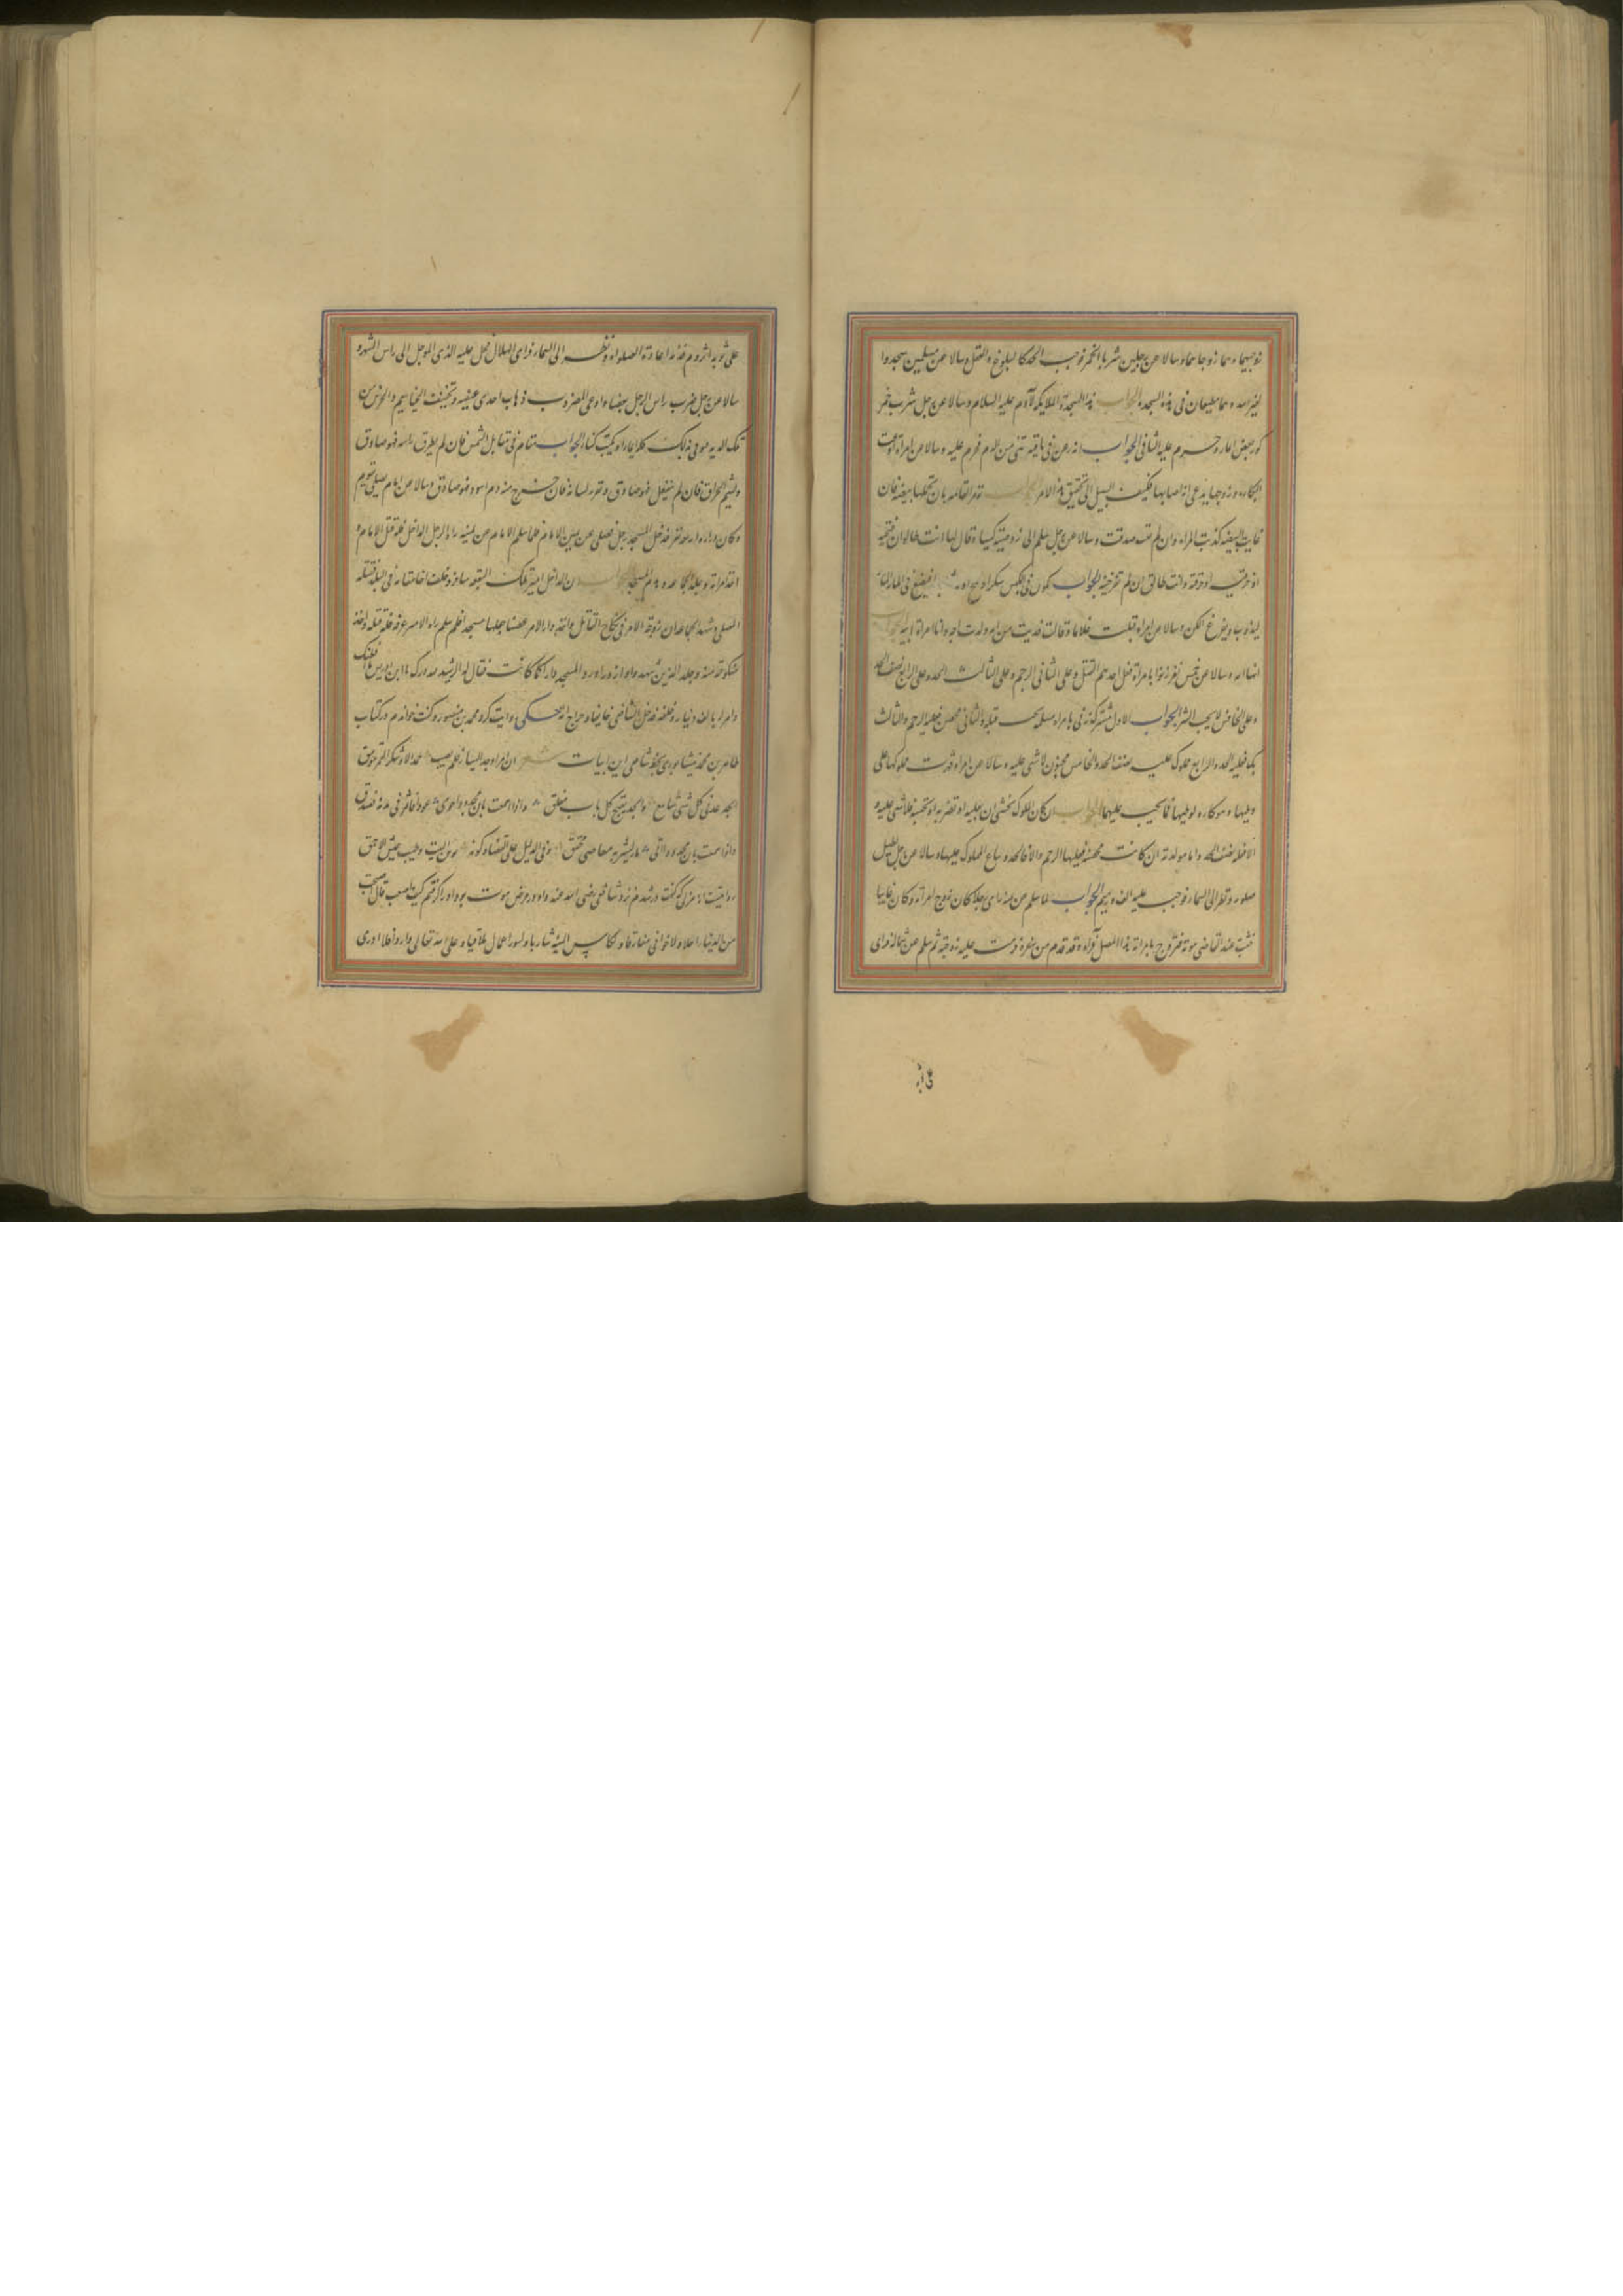 زوجیهما وهما زوجاهما وسالا عن رجلین شربا الخمر فوجب الحد کالبلوغ والعقل وسالا عن مسلمین سجدوا
لغیر الله وهما مطیعان فی هذه السجده الجواب هذا السجدة الملایکه لآدم علیه السلام وسالا عن رجل شرب خمر
کوز بعض الماء وحرم علیه الثانی الجواب انه رعف فی باقیه شی من الدم فحرم علیه وسالا عن امراة ادعت
البکاره وزوجها یدعی انه اصابها فکیف السبیل الی تحقیق هذا الامر الجواب تومر القابله بان تحملها بیضه فان
غابت البیضه کذبت المراه وان لم تغب صدقت وسالا عن رجل سلم الی زوجته کیسا وقال لها انت طالق ان فتحتیه
او خرقته وانت طالق ان لم تفرغیه الجواب یکون فی الکیس سکر او ملح او فیوضع فی الماء
لیذوب ویفرغ الکن وسالا عن امراه قبلت غلاما وقالت فدیت من امه ولدت امه وانا امراة ابیه الجواب
انها امه وسالا عن خمس نفر زنوا بامراة فعلی احدهم القتل وعلی الثانی الرجم وعلی الثالث الحد وعلی الرابع نصف الحد
وعلی الخامس لا یجب الشی الجواب الاول مشرک زنی بامراه مسلمه یجب قتله والثانی محصن فعلیه الرجم والثالث
بکر فعلیه الحد والرابع مملوک علیه نصف الحد والخامس مجنون لا شی علیه وسالا عن امراه قهرت مملوکها علی
وطیها وهو کاره لوطیها فما یجب علیهما الجواب ان کان المملوک یخشی ان تقتله او تضربه او تحبسه فلا شی علیه و
الا فعلیه نصف الحد واما مولاته ان کانت محصنه فعلیها الرجم والا فالحد ویباع المملوک علیها وسالا عن رجل
صلوه ونظر الی السماء فوجب علیه الف درهم الجواب لما سلم عن یمینه رای رجلا کان زوج امراة وکان غایبا
فثبت عند القاضی موته فتزوج بامراته هذا المصلی فراه وقد قدم من سفره فحرمت علیه زوجته ثم سلم عن شماله فرای
علی ثوبه
علی ثوبه اثر دم فلزمه اعادة الصلواة ونظر الی السماء فرای الهلال فحل علیه الدین الموجل الی راس الشهر و
سالا عن رجل ضرب راس الرجل بعصا وادعی المضروب ذهاب احدی عینیه وتجفیف الخیاشیم والخرس من
تلک الضربه فی ذلک کله ایماء او یکتب کتابا الجواب یقام فی مقابل الشمس فان لم یطرق راسه فهو صادق
ویشم الحراق فان لم ینفعل فهو صادق ویغرز لسانه فان خرج منه دم اسود فهو صادق وسالا عن امام یصلی بقوم
وکان وراه اربعة نفر فدخل المسجد رجل فصلی عن یمین الامام فلما سلم الامام عن یمینه راه الرجل الداخل فله قتل الامام و
اخذ امراة وجلد الجماعه وهدم المسجد الجواب ان الداخل امیر تلک البقعه سافر وخلف اخا مقامه فی البلد فقتله
المصلی وشهد الجماعه ان زوجه الامیر فی نکاح القاتل واخذ دار الامیر غصبا جعلها مسجدا فلما سلم راه الامیر عرفه فله قتله واخذ
منکوحته منه وجلد الذین شهدوا زورا ورد المسجد دارا کما کانت فقال الرشید لله درک یا ابن ادریس ما افطنک
وامر له بالف دینار وخلعه فدخل الشافعی خایفا وخرج آمنا حکی روایت کرد محمد بن منصور وکفت خواندم در کتاب
طاهر بن محمد نیشابوری بخط شافعی این ابیات شعر ان امراء وجد الیسار فلم یصب حمدا ولا شکرا لغیر موفق
الجد یدنی کل شی شاسع والجد یفتح کل باب مغلق واذا سمعت بان مجدودا حوی عودا فاثمر فی یدیه فصدق
واذا سمعت بان محدودا اتی ماء لیشربه فغاض فحقق ومن الدلیل علی القضاء وکونه بوس اللبیب وطیب عیش الاحمق
روایتست از مزنی که کفت در شدم نزد شافعی رضی الله عنه واو در مرض موت بود او را کفتم کیف اصبحت قال اصبحت
من الدنیا راحلا ولاخوانی مفارقا ولکاس المنیه شاربا ولسوء اعمالی ملاقیا وعلی الله تعالی واردا فلا ادری